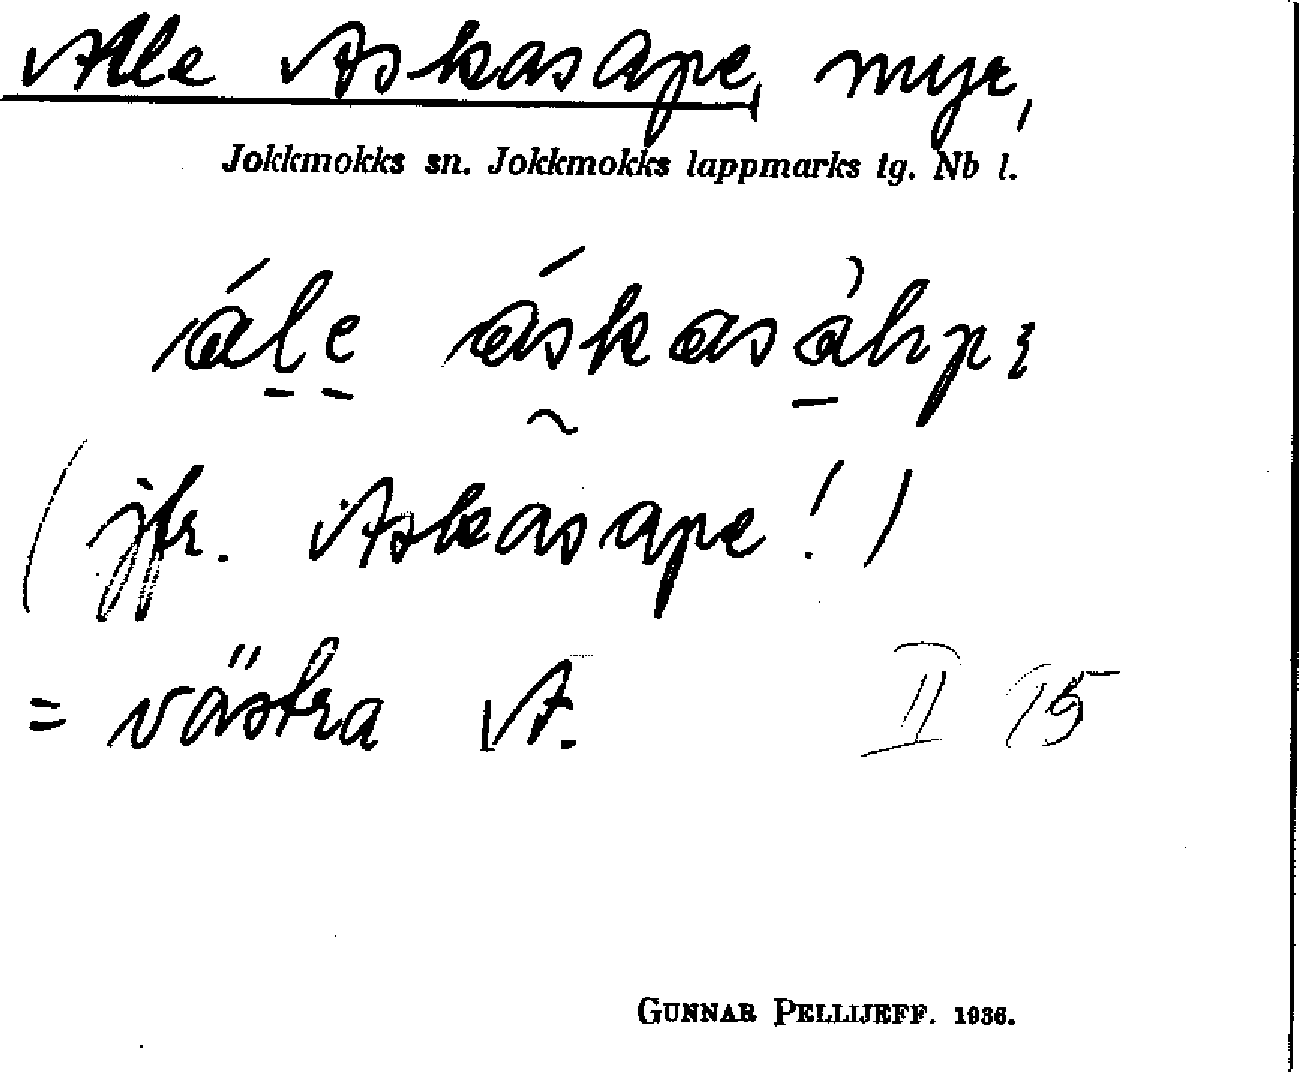 Alle Askasape, myr,
Jokkmokks sn. Jokkmokks lappmarks tg. Nb l.
ále áskasàhpɛ
(jfr. Askasape!)
= västra A. II 15
GUNNAR PELLIJEFF. 1936.